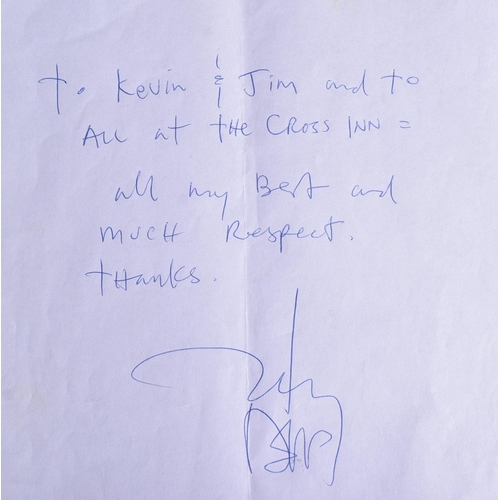 to Kevin & Jim and to
All at THE CROSS INN =
all my Best and
MUCH Respect.
tHanks.